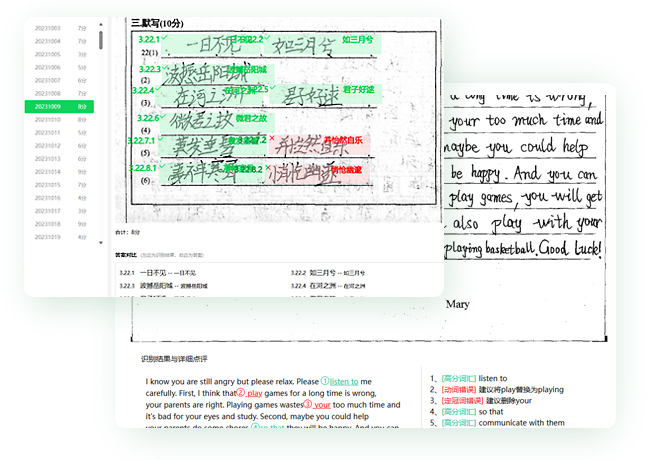 20231003 7分
20231004 7分
20231005 3分
20231006 5分
20231007 6分
20231008 7分
20231009 8分
20231010 8分
20231011 5分
20231012 6分
20231013 6分
20231014 9分
20231015 7分
20231016 4分
20231017 3分
20231018 9分
20231019 4分
三.默写(10分)
3.22.1 一日不见 3.22.2 如三月兮 如三月兮
22(1)
3.22.3 波撼岳阳城 波撼岳阳城
(2)
3.22.4 在河之洲 君子好逑 君子好逑
(3)
3.22.6 微君之故 微君之故
(4)
3.22.7.1
(5)
3.22.8.1
(6)
合计: 8分
答案对比
3.22.1 一日不见 -- 一日不见
3.22.2 如三月兮 -- 如三月兮
3.22.3 波撼岳阳城 -- 波撼岳阳城
3.22.4 在河之洲 -- 在河之洲
a long time is wrong,
your too much time and
maybe you could help
be happy. And you can
play games, you will get
also play with your
playing basketball. Good luck!
Mary
识别结果与详细点评
I know you are still angry but please relax. Please ①listen to me
carefully. First, I think that② play games for a long time is wrong,
your parents are right. Playing games wastes③ your too much time and
It's bad for your eyes and study. Second, maybe you could help
your parents do some chores ④so that they will be happy. And you can
1、[高分词汇] listen to
2、[动词错误] 建议将play替换为playing
3、[定冠词错误] 建议删除your
4、[高分词汇] so that
5、[高分词汇] communicate with them